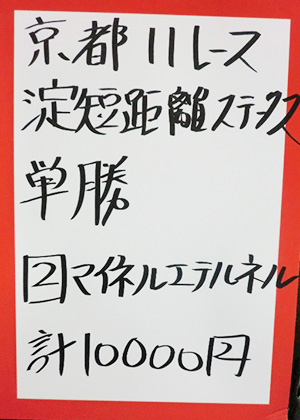 京都11レース
淀短距離ステークス
単勝
2マイネルエテルネル
計10000円